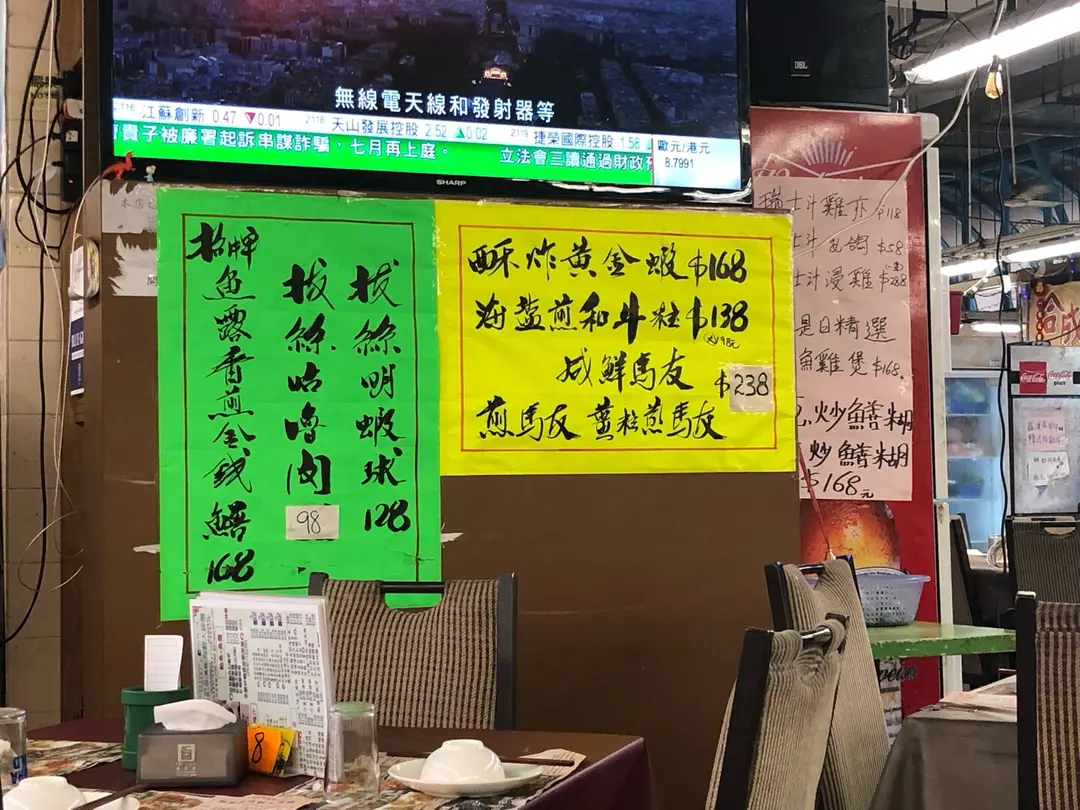 無線電天線和發射器等
2116 江蘇創新 0.47 ▼0.01 2118 天山發展控股 2.52 ▲0.02 2119 捷榮國際控股 1.58
貴子被廉署起訴串謀詐騙，七月再上庭。 立法會三讀通過財政
歐元/港元
8.7991
SHARP
JBL
招牌魚露香煎金錢鱔
168
拔絲咕嚕肉
98
拔絲明蝦球
128
酥炸黃金蝦 $168
海鹽煎和牛粒 $138
咸鮮馬友 $238
煎馬友 薑粒煎馬友
瑞士汁雞亦 $118
士汁乳鴿 $58
士汁浸雞
是日精選
魚雞煲 $168
炒鱔糊
炒鱔糊
$168元
Coca-Cola
Coca-Cola plus
8